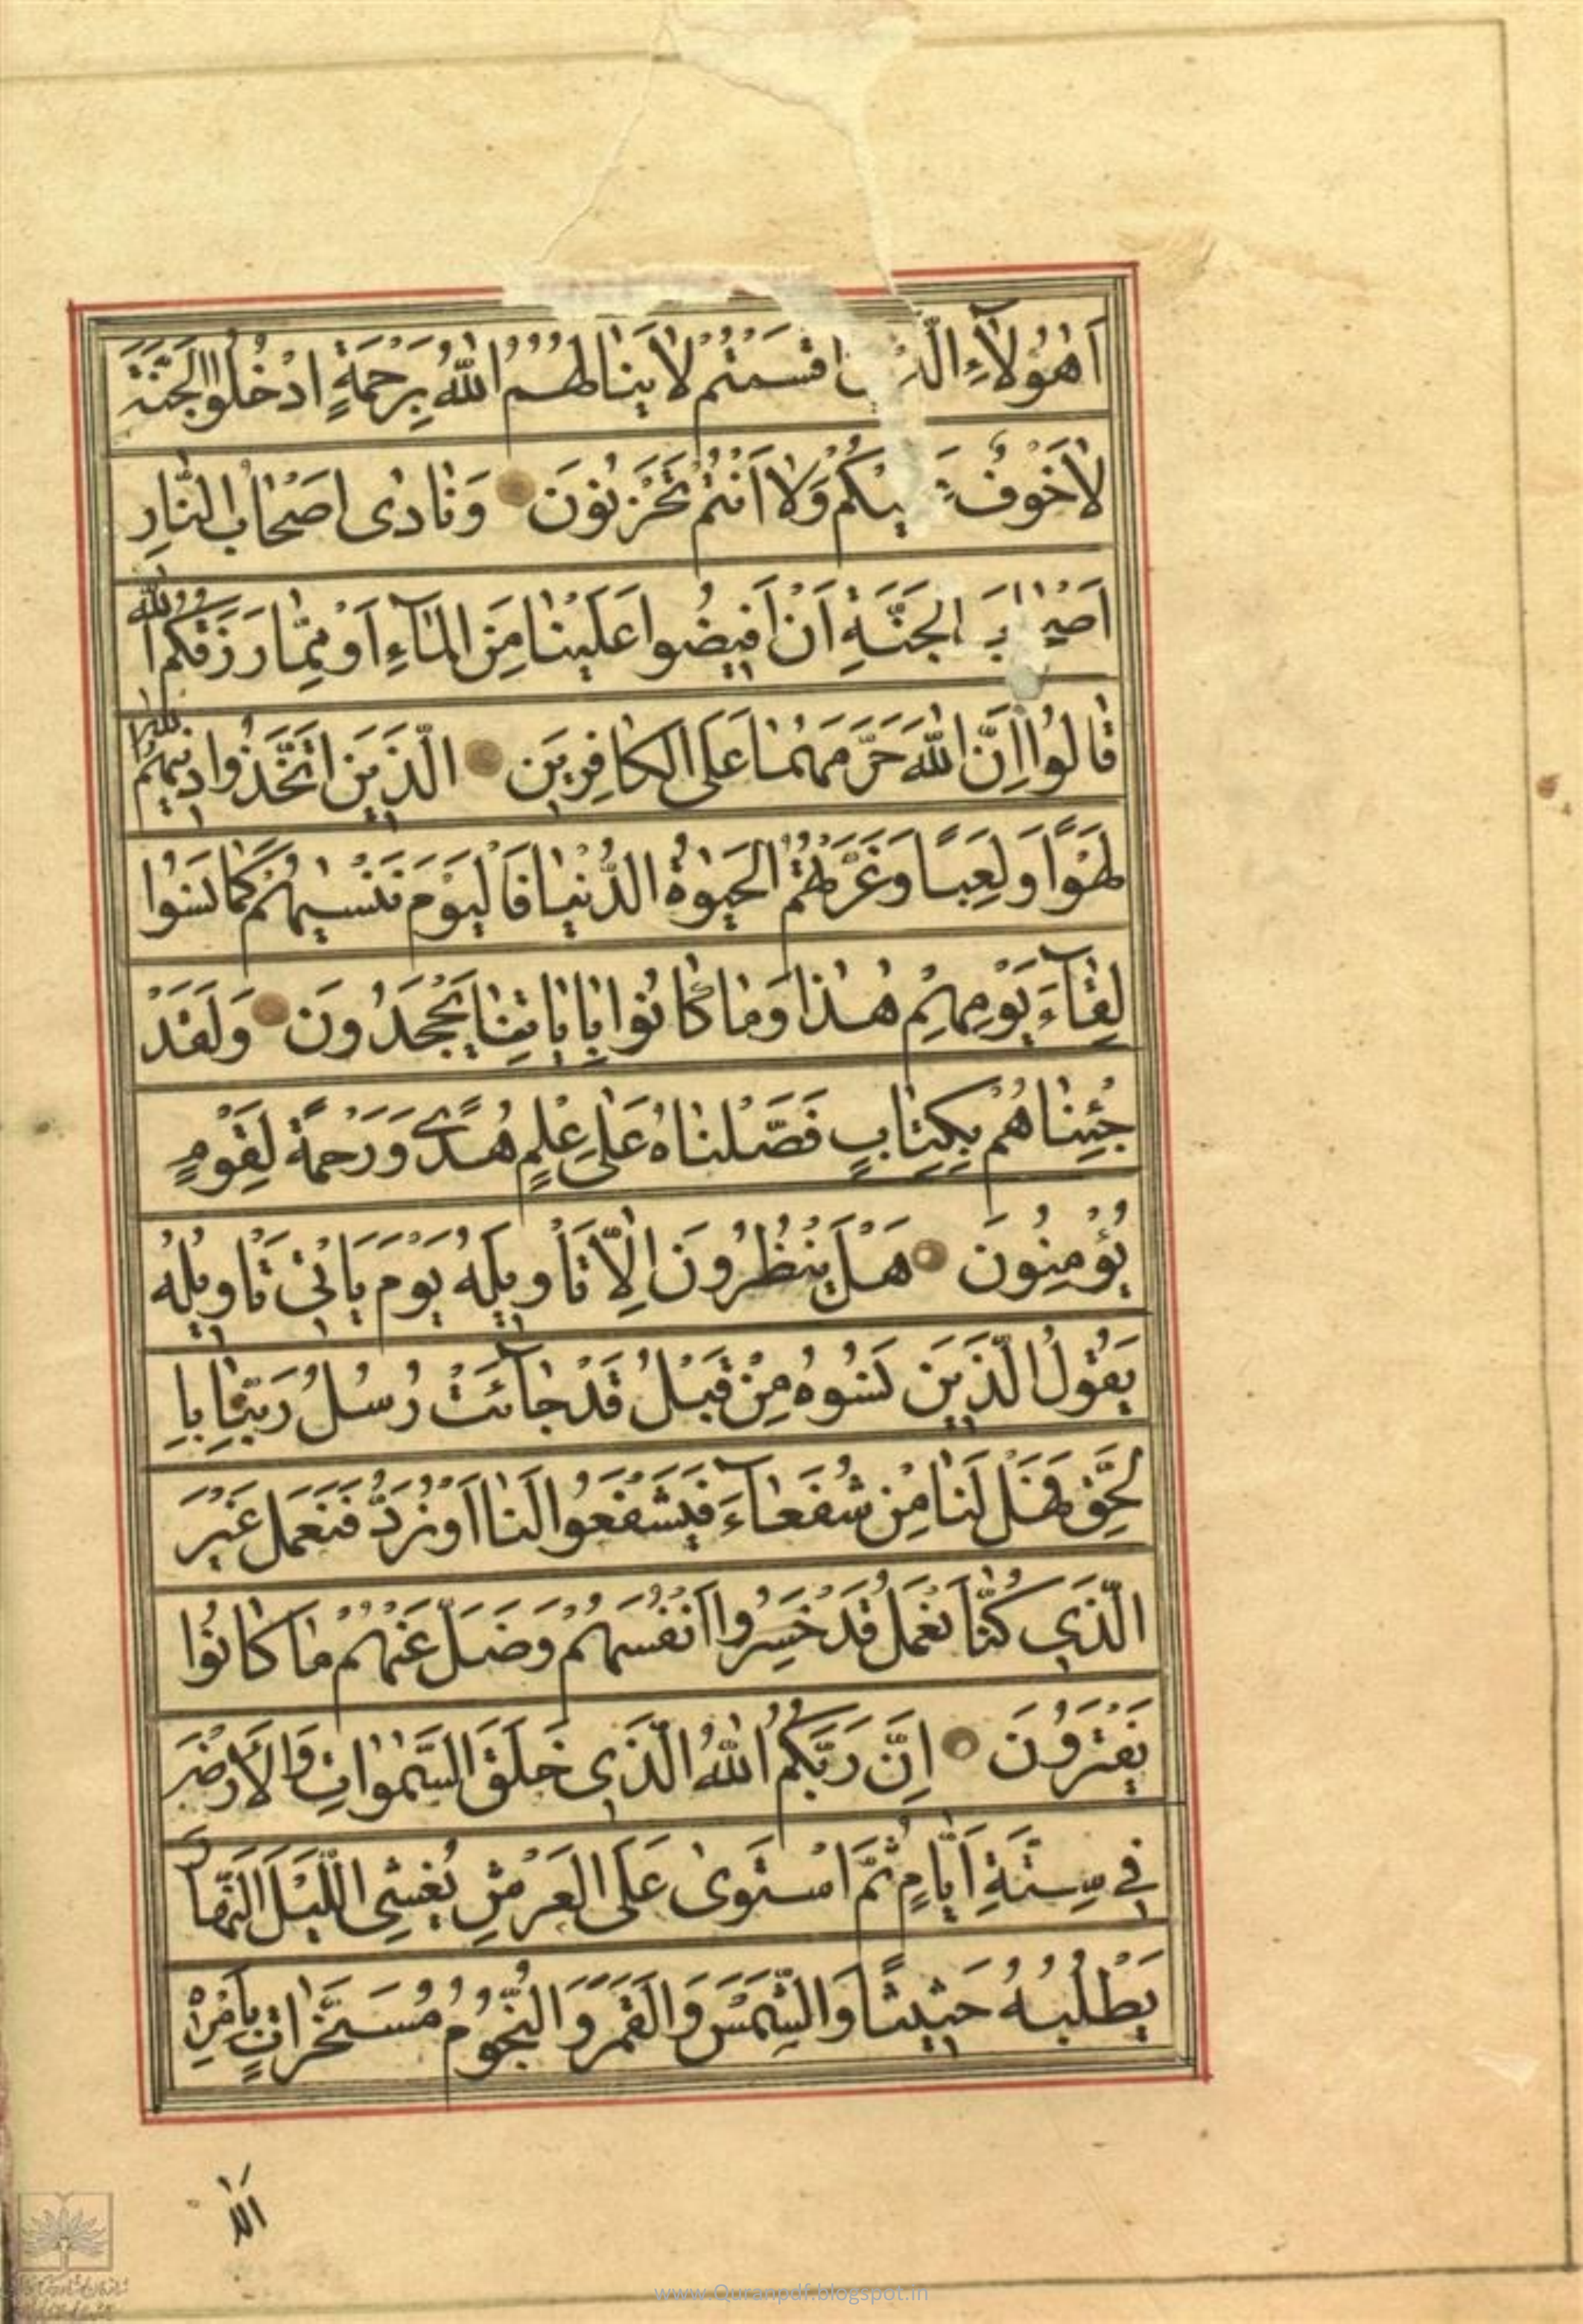 اَهٰؤُلاۤءِ الَّذِينَ اَقْسَمْتُمْ لا يَنٰالُهُمُ اللّٰهُ بِرَحْمَةٍ اُدْخُلُوا الْجَنَّةَ
لاٰ خَوْفٌ عَلَيْكُمْ وَلاٰ اَنْتُمْ تَحْزَنُونَ وَنٰادٰى اَصْحٰابُ النّٰارِ
اَصْحٰابَ الْجَنَّةِ اَنْ اَفِيضُوا عَلَيْنٰا مِنَ الْمٰاۤءِ اَوْ مِمّٰا رَزَقَكُمُ اللّٰهُ
قٰالُوا اِنَّ اللّٰهَ حَرَّمَهُمٰا عَلَى الْكٰافِرِينَ الَّذِينَ اتَّخَذُوا دِينَهُمْ
لَهْوًا وَلَعِبًا وَغَرَّتْهُمُ الْحَيٰوةُ الدُّنْيٰا فَالْيَوْمَ نَنْسٰيهُمْ كَمٰا نَسُوا
لِقٰاۤءَ يَوْمِهِمْ هٰذٰا وَمٰا كٰانُوا بِاٰيٰاتِنٰا يَجْحَدُونَ وَلَقَدْ
جِئْنٰاهُمْ بِكِتٰابٍ فَصَّلْنٰاهُ عَلٰى عِلْمٍ هُدًى وَرَحْمَةً لِقَوْمٍ
يُؤْمِنُونَ هَلْ يَنْظُرُونَ اِلّٰا تَأْوِيلَهُ يَوْمَ يَأْتِي تَأْوِيلُهُ
يَقُولُ الَّذِينَ نَسُوهُ مِنْ قَبْلُ قَدْ جٰاۤئَتْ رُسُلُ رَبِّنٰا بِا
لْحَقِّ فَهَلْ لَنٰا مِنْ شُفَعٰاۤءَ فَيَشْفَعُوا لَنٰا اَوْ نُرَدُّ فَنَعْمَلَ غَيْرَ
الَّذِي كُنّٰا نَعْمَلُ قَدْ خَسِرُوا اَنْفُسَهُمْ وَضَلَّ عَنْهُمْ مٰا كٰانُوا
يَفْتَرُونَ اِنَّ رَبَّكُمُ اللّٰهُ الَّذِي خَلَقَ السَّمٰوٰاتِ وَالْاَرْضَ
فِي سِتَّةِ اَيّٰامٍ ثُمَّ اسْتَوٰى عَلَى الْعَرْشِ يُغْشِي اللَّيْلَ النَّهٰارَ
يَطْلُبُهُ حَثِيثًا وَالشَّمْسَ وَالْقَمَرَ وَالنُّجُومَ مُسَخَّرٰاتٍ بِاَمْرِهِ
اَلٰا
www.Quranpdf.blogspot.in